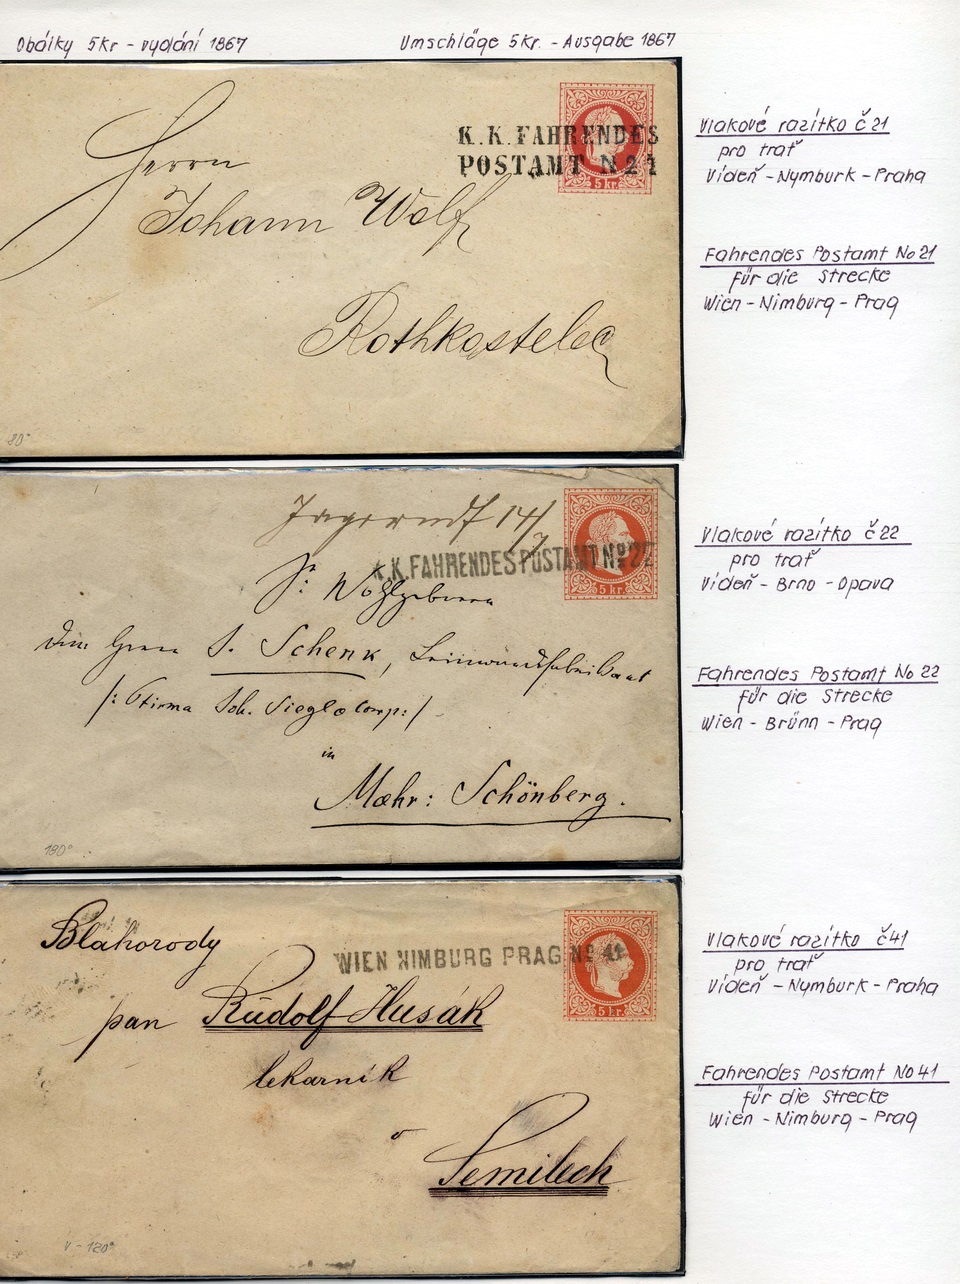 Obálky 5kr - vydání 1867
Umschläge 5kr. - Ausgabe 1867
K. K. FAHRENDES
POSTAMT N 21
5 kr.
Herrn
Johann Wolf
Rothkostelec
80.-
Vlakové razítko č 21
pro trať
Vídeň - Nymburk - Praha
Fahrendes Postamt No 21
für die Strecke
Wien - Nimburg - Prag
14/7
K.K. FAHRENDES POSTAMT No 22
5 kr.
Sr Wohlgeboren
Herrn J. Schenk,
/: Firma Joh. Siegl & Comp: /
in
Maehr: Schönberg.
180.-
Vlakové razítko č 22
pro trať
Vídeň - Brno - Opava
Fahrendes Postamt No 22
für die Strecke
Wien - Brünn - Prag
Blahorody
WIEN NIMBURG PRAG No 41
5 kr.
pan Rudolf Husák
lekarník
v
Semilech
v - 120.-
Vlakové razítko č 41
pro trať
Vídeň - Nymburk - Praha
Fahrendes Postamt No 41
für die Strecke
Wien - Nimburg - Prag